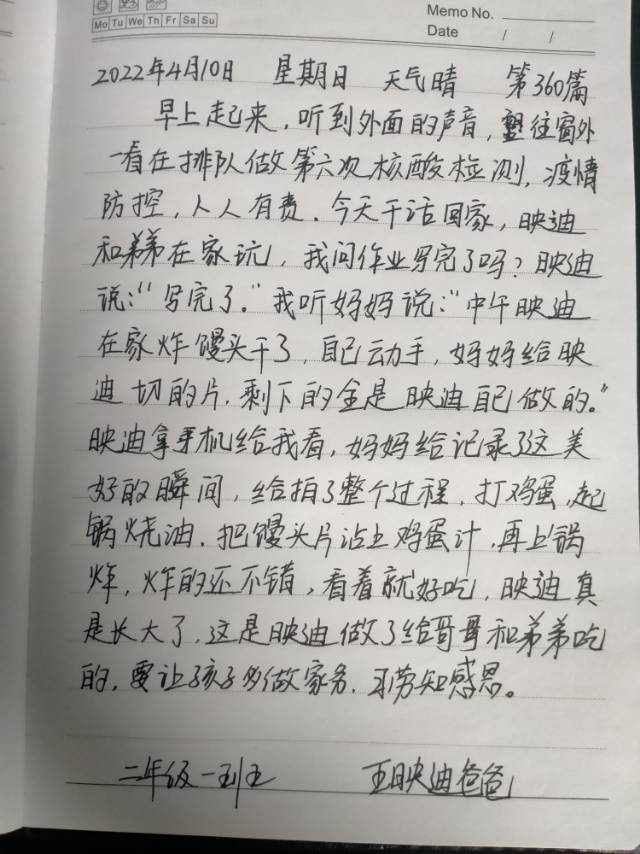 Memo No.
Mo Tu We Th Fr Sa Su
Date / /
2022年4月10日 星期日 天气晴 第360篇
早上起来，听到外面的声音，往窗外
一看在排队做第六次核酸检测，疫情
防控，人人有责．今天干活回家，映迪
和弟弟在家玩，我问作业写完了吗？映迪
说：“写完了．”我听妈妈说：“中午映迪
在家炸馒头干了，自己动手，妈妈给映
迪切的片．剩下的全是映迪自己做的。”
映迪拿手机给我看，妈妈给记录了这美
好的瞬间，给拍了整个过程，打鸡蛋，起
锅烧油．把馒头片沾上鸡蛋汁，再上锅
炸，炸的还不错，看着就好吃，映迪真
是长大了，这是映迪做了给哥哥和弟弟吃
的，要让孩子多做家务．习劳知感恩。
二年级一班 王映迪爸爸